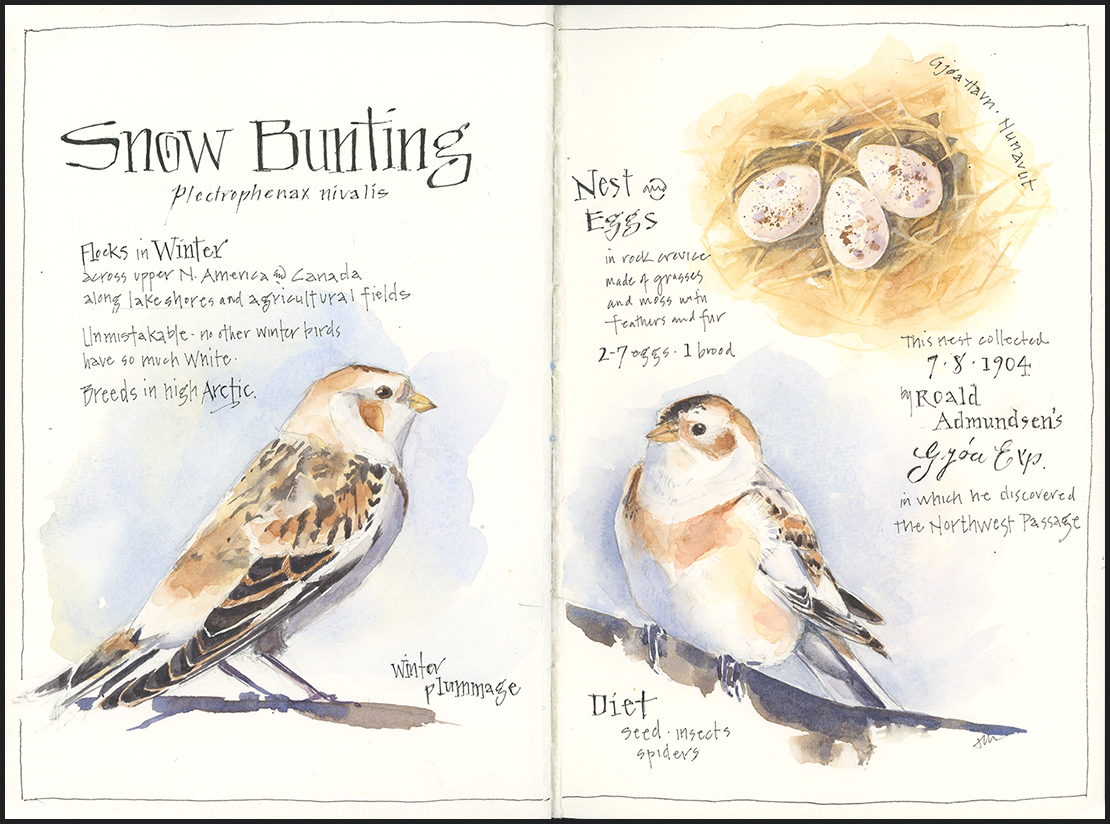 Snow Bunting
Plectrophenax nivalis
Flocks in Winter
across upper N. America and Canada
along lakeshores and agricultural fields
Unmistakable - no other winter birds
have so much White.
Breeds in high Arctic.
winter
plummage
Gjøa Havn · Nunavut
Nest and
Eggs
in rock crevice
made of grasses
and moss with
feathers and fur
2-7 eggs · 1 brood
This nest collected
7 · 8 · 1904
by Roald
Admundsen's
Gjóa Exp.
in which he discovered
the Northwest Passage
Diet
seed · insects
spiders